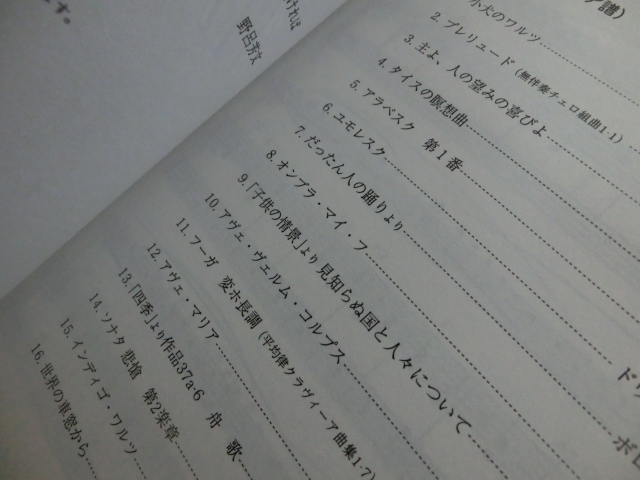 す。
ければ
野呂芳文
ア譜)
小犬のワルツ
2. プレリュード (無伴奏チェロ組曲1-1)
3. 主よ、人の望みの喜びよ
4. タイスの瞑想曲
5. アラベスク 第1番
6. ユモレスク
7. だったん人の踊りより
8. オンブラ・マイ・フ
9. 「子供の情景」より 見知らぬ国と人々について
10. アヴェ・ヴェルム・コルプス
11. フーガ 変ホ長調 (平均律クラヴィーア曲集1-7)
12. アヴェ・マリア
13. 「四季」より作品37a-6 舟 歌
14. ソナタ 悲愴 第2楽章
15. インディゴ・ワルツ
16. 世界の車窓から
ドヴ
ボロ